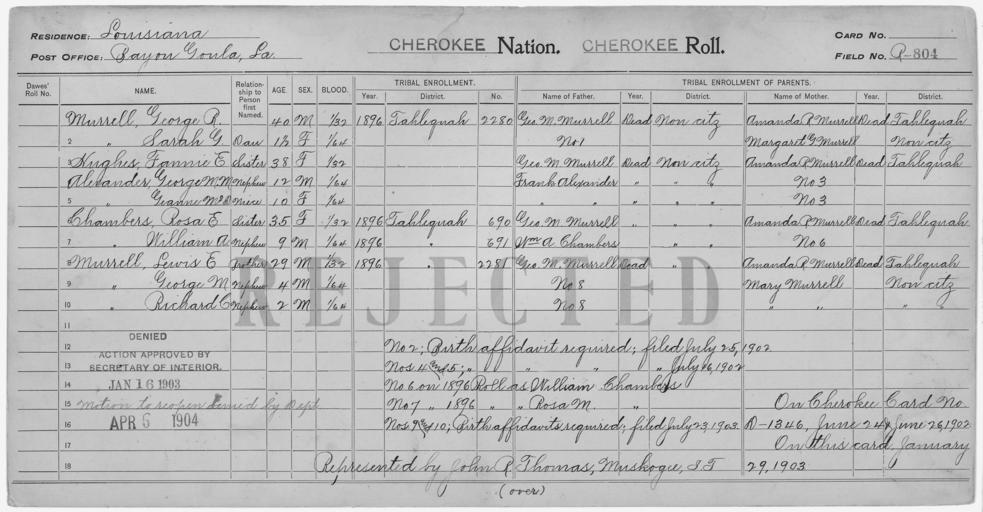 RESIDENCE: Louisiana
POST OFFICE: Bayou Goula, La.
CHEROKEE Nation. CHEROKEE Roll.
CARD NO.
FIELD NO. R-804
Dawes' Roll No. NAME. Relationship to Person first Named. AGE. SEX. BLOOD. TRIBAL ENROLLMENT. TRIBAL ENROLLMENT OF PARENTS.
Year. District. No. Name of Father. Year. District. Name of Mother. Year. District.
Murrell, George R. 40 M 1/32 1896 Tahlequah 2280 Geo. M. Murrell Dead Non citz Amanda R Murrell Dead Tahlequah
2 " Sarah G. Dau F 1/64 No 1 Margaret G Murrell Non citz
3 Hughes, Fannie E. Sister 38 F 1/32 Geo. M. Murrell Dead Non citz Amanda R Murrell Dead Tahlequah
Alexander, George M. Nephew 12 M 1/64 Frank Alexander " " " No 3
5 " Jeanne Niece 10 F 1/64 " " " " " No 3
Chambers, Rosa E Sister 35 F 1/32 1896 Tahlequah 690 Geo. M. Murrell " " " Amanda R Murrell Dead Tahlequah
7 " William A. Nephew 9 M 1/64 1896 " 691 Wm A Chambers " " No 6
8 Murrell, Lewis E Brother 29 M 1/32 1896 " 2281 Geo. M. Murrell Dead " " Amanda R Murrell Dead Tahlequah
9 " George M Nephew 4 M 1/64 No 8 Mary Murrell Non citz
10 " Richard C Nephew 2 M 1/64 No 8 " " " "
REJECTED
11
12 No 2; Birth affidavit required; filed July 25, 1902
DENIED
13 Nos 4 & 5; " " " " July 16, 1902
ACTION APPROVED BY
SECRETARY OF INTERIOR.
14 No 6 on 1896 Roll as William Chambers
JAN 16 1903
15 No 7 " 1896 " " Rosa M. " On Cherokee Card No
Motion to reopen denied by Dept
16 Nos 9 & 10; Birth affidavits required; filed July 23, 1903. D-1346, June 24 & June 26, 1902
APR 5 1904
17 On this card, January
18 Represented by John R. Thomas, Muskogee, I.T. 29, 1903
(over)